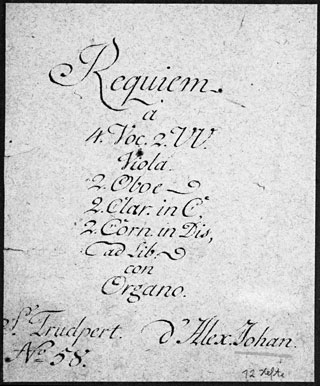 Requiem.
à
4. Voc. 2. VV.
Viola.
2. Oboe
2. Clar. in C,
2. Corn. in Dis,
ad Lib.
con
Organo.
St Trudpert. d'Alex. Johan.
No 58.
12 Hefte